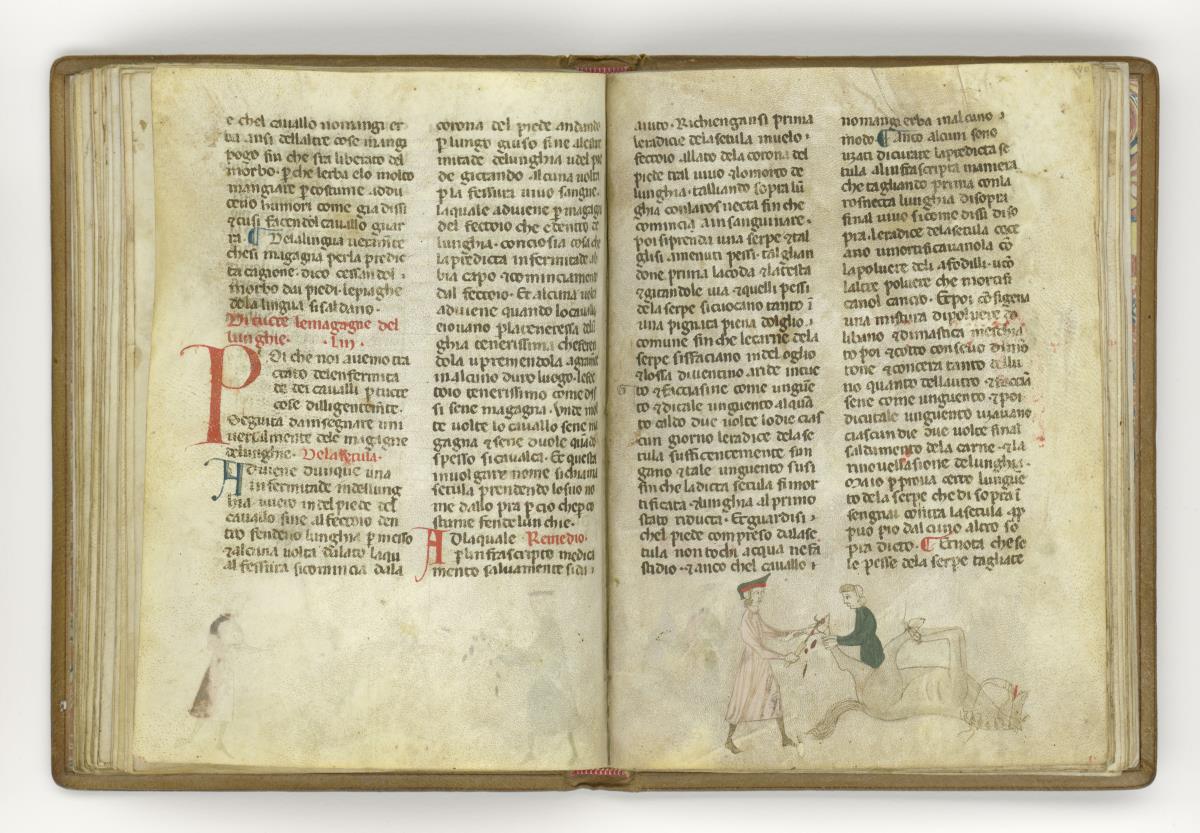 e chel cavallo nomangi er
ba ansi dellaltre cose mangi
pogo fin che sia liberato del
morbo · p̄che lerba elo molto
mangiare p̄ costume addu
cono humori come gia dissi
⁊ cusi facendo el cavallo guar
ra · Dela lingua
chesi magagna per la predic
ta cagione · dico cessando l
morbo dai piedi · le piaghe
de la lingua si saldano ·
Di tucte le magagne del
lunghie · · liii ·
Poi che noi avemo tra
ctato del enfermita
te dei cavalli p̄ tucte
cose diligentemte ·
Seguita da insegnare uni
versalmente dele magagne
delunghie · Dela setula ·
Adviene dunque una
infermitade indellung
hia · uuero in del piede del
cavallo fine al fectoio den
tro fendeno lunghia p̄ mesço
⁊ alcuna volta dalato laqu
al fessura sicomincia dala
corona del piede andando
p̄ lungo giuso fine alextre
mitade delunghia udel pie
de gictando alcuna volta
p̄ la fessura vivo sangue
laquale adviene p̄ magagna
del fectoio che edentro da
lunghia · concio sia cosa che
la predicta infermitade ab
bia capo ⁊ cominciamento
dal fectoio · Et alcuna volta
adviene quando lo cavallo
e iovano p̄ la teneressa dell
ghia tenerissima
dola u premendola agramente
in alcuno duro luogo · lo fec
toio tenerissimo come dis
si sene magagna · Unde mol
te volte lo cavallo sene ma
gagna ⁊ sene duole quando
spesso si cavalca · Et questa
in volgare nome si chiama
setula prendendo lo suo no
me dallo pra p̄ cio che p̄ co
stume fende lun chie ·
Ad laquale Remedio ·
p̄ la nfrascripto medica
mento salvamente si da i
aiuto · Richiengansi prima
le radicie dela setula in uelo
fectoio allato dela corona del
piede tral vivo ⁊ lo morto de
lunghia · talliando sopra lū
ghia con la rosnecta fin che
comincia a insanguinare ·
poi si prenda una serpe ⁊ tal
glisi a menuti pessi · talglian
done prima la coda ⁊ la testa
⁊ gitandole via ⁊ quelli pessi
de la serpe si cuocano tanto ī
una pignata piena dolglio
comune fin che le carne dela
serpe si sfaciano indel oglio
⁊ lossa diventino aride in cue
to ⁊ facciasine come ungue
to ⁊ di tale unguento alquā
to caldo due volte lo die cias
cun giorno le radice dela se
tula sufficentemente sun
gano ⁊ tale unguento susi
fin che la dicta setula si mor
tificata · ⁊ lunghia al primo
stato riducta · Et guardisi
chel piede compreso dalla se
tula non tochi acqua ne fā
stidio · ⁊ anco chel cavallo
no mangi erba in alcuno
modo · Anco alcuni sono
usati di curare la predicta se
tula a linfrascripta maniera
che tagliando prima con la
rosnecta lunghia disopra
fin al vivo si come dissi di so
pra · le radice dela setula coce
ano u mortificavanola cō
la polvere deli afodilli · u cō
laltre polvere che mortifi
canol cancro · Et poi
una mistura di polvere do
libano ⁊ di mastica meschia
to poi ⁊ cotto con sevo di mō
tone ⁊ con cera tanto de lu
no quanto dellautro ⁊ faccia
sene come unguento · ⁊ poi
di cutale unguento usavano
ciascun die due volte final
saldamento dela carne · ⁊ la
rinovellasione delunghia ·
Ma io p̄ prova certo lungue
to dela serpe che di sopra ī
sengnai contra la setula · q̄
puo pio dalcuno altro so
pra dicto · Et nota che se
le pesse dela serpe tagliate